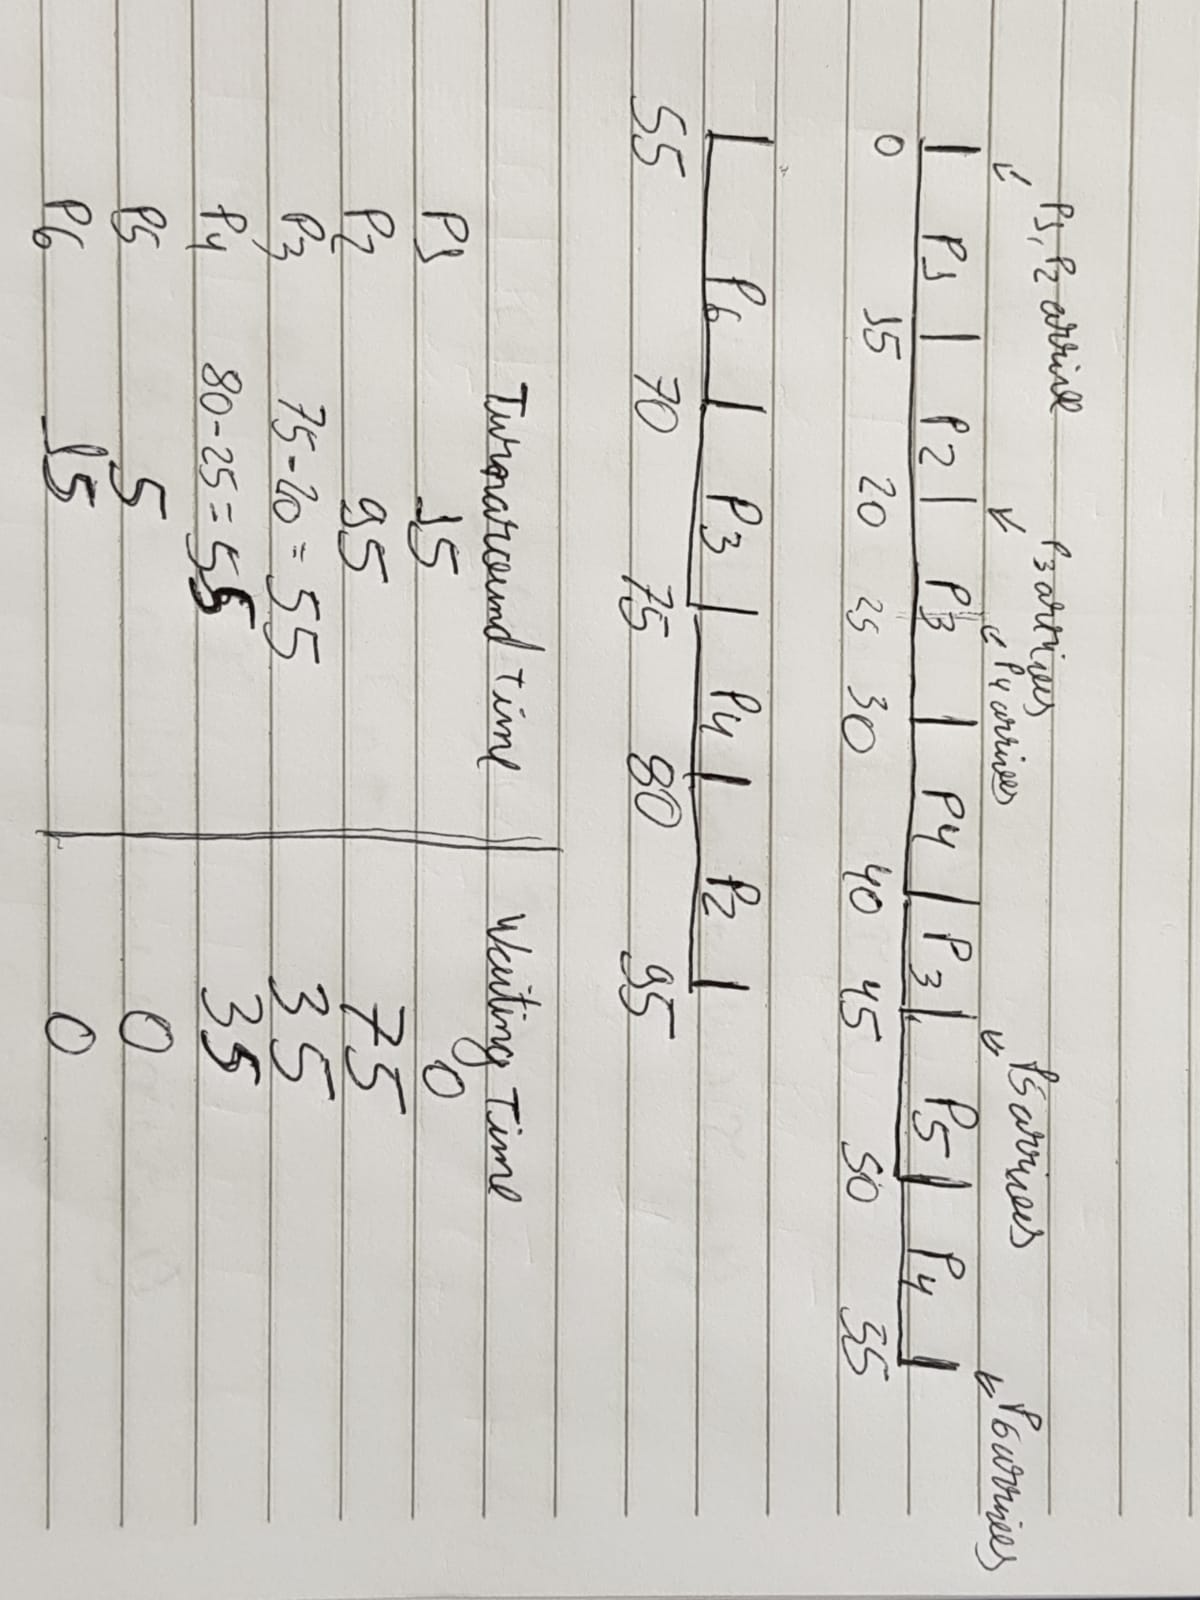 P1, P2 arrive P3 arrives P4 arrives P5 arrives P6 arrives
P1 P2 P3 P4 P3 P5 P4
0 15 20 25 30 40 45 50 55
P6 P3 P4 P2
55 70 75 80 95
Turnaround time Waiting Time
P1 15 0
P2 95 75
P3 75-20 = 55 35
P4 80-25 = 55 35
P5 5 0
P6 15 0